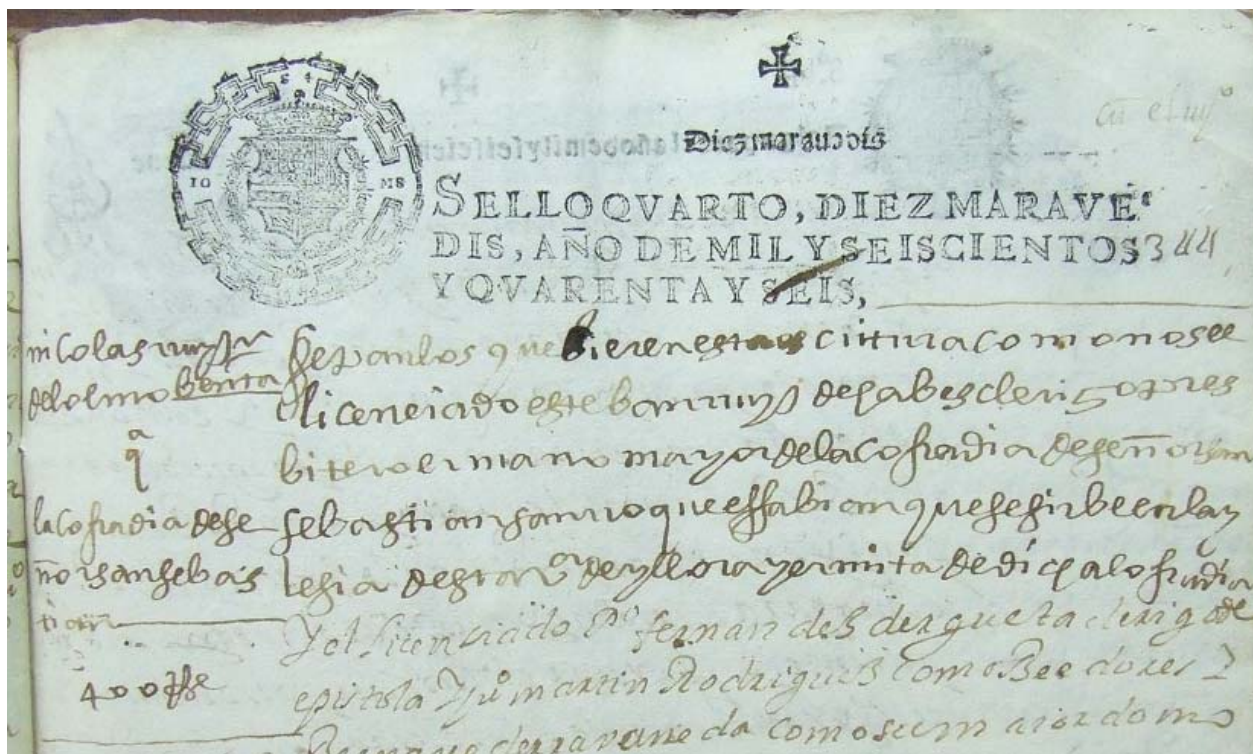 Diez marauedis
SELLO QVARTO, DIEZ MARAVE-
DIS, AÑO DE MIL Y SEISCIENTOS 344
Y QVARENTA Y SEIS,
nicolas ruyz
del olmo benta
a
q
la cofradia de se
ñor san sebas
tian
400 rs
Sepan los que bieren esta escittura como nos e
licenciado esteban ruyz de clerigo pres
bitero ermano mayor de la cofradia de señor san
sebastian san roque fabian que se sirbe en la y
lesia desta va de yllora y ermita de dicha cofradia
Y el licensiado po fernandes dergueta clerigo de
epistola Y ju martin Rodrigues como Beedores Y
como su maiordomo